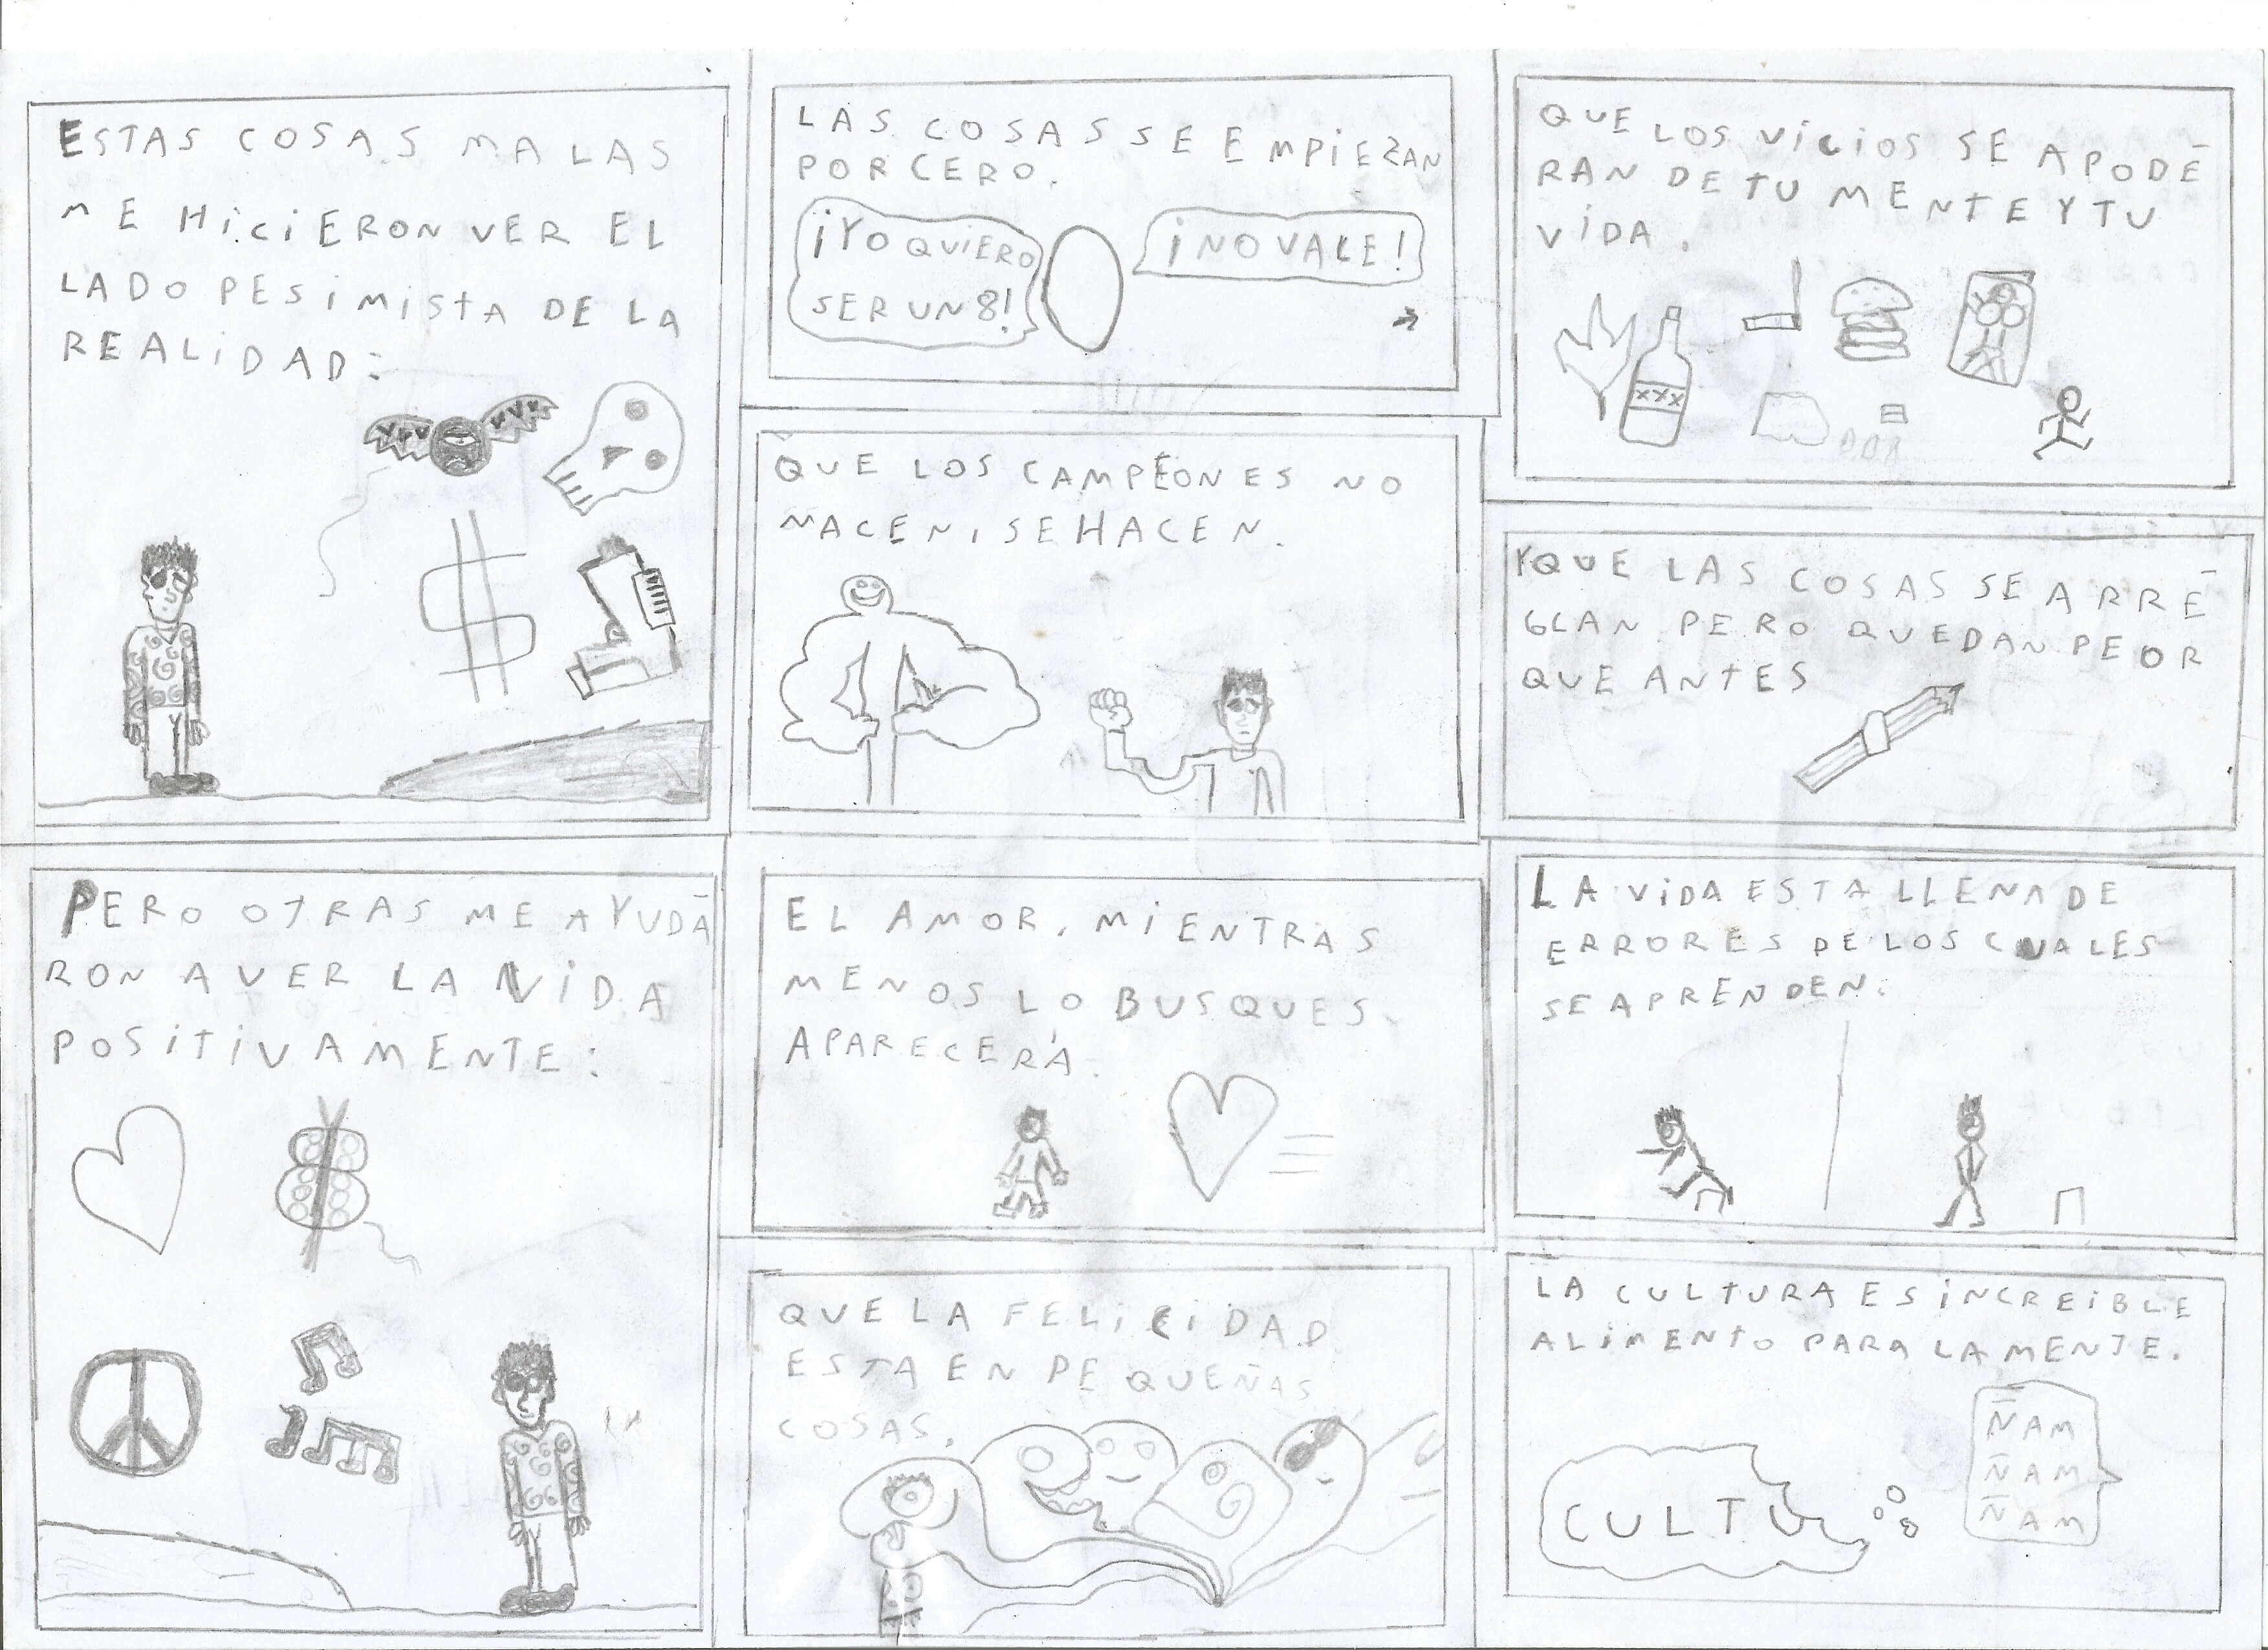 ESTAS COSAS MALAS
ME HICIERON VER EL
LADO PESIMISTA DE LA
REALIDAD:
LAS COSAS SE EMPIEZAN
POR CERO.
¡YO QUIERO
SER UN 8!
¡NO VALE!
QUE LOS CAMPEONES NO
NACEN, SE HACEN.
QUE LOS VICIOS SE APODE
RAN DE TU MENTE Y TU
VIDA.
XXX
Y QUE LAS COSAS SE ARRE
GLAN PERO QUEDAN PEOR
QUE ANTES
PERO OTRAS ME AYUDA
RON A VER LA VIDA
POSITIVAMENTE:
EL AMOR, MIENTRAS
MENOS LO BUSQUES
APARECERÁ.
QUE LA FELICIDAD
ESTA EN PEQUEÑAS
COSAS.
LA VIDA ESTA LLENA DE
ERRORES DE LOS CUALES
SE APRENDEN.
LA CULTURA ES INCREIBLE
ALIMENTO PARA LA MENTE.
CULTU
ÑAM
ÑAM
ÑAM